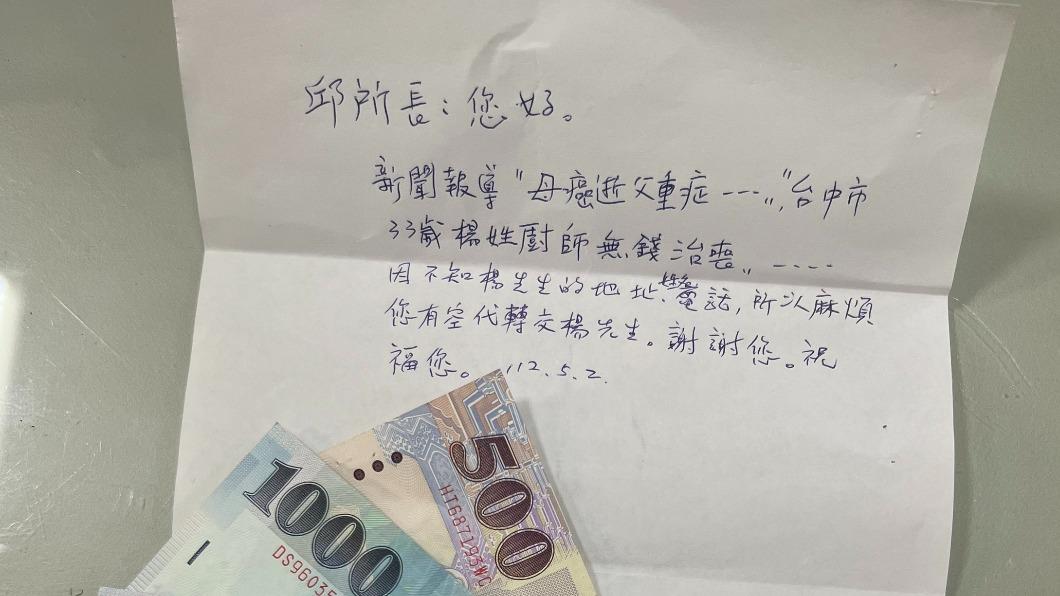 邱所長：您好。
新聞報導"母癌逝父重症----"，台中市
33歲楊姓廚師無錢治喪"----
因不知楊先生的地址、電話，所以麻煩
您有空代轉交楊先生。謝謝您。祝
福您。 112.5.2.
1000
500
HT687193WC
DS96035